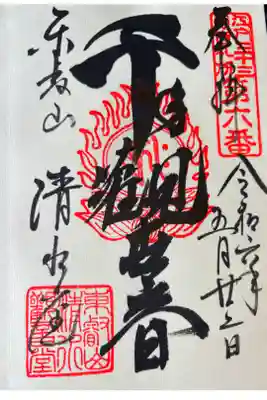 奉拝
第六番
令和六年
五月廿二日
千手観世音
東叡山
清水堂
東叡山
清水
観音堂